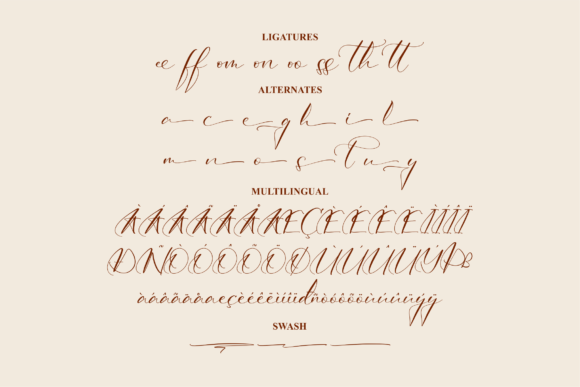 LIGATURES
ee ff om on oo ss th tt
ALTERNATES
a c e g h i l
m n o s t u y
MULTILINGUAL
À Á Â Ã Ä Å Æ Ç È É Ê Ë Ì Í Î Ï
Ð Ñ Ò Ó Ô Õ Ö Ø Ù Ú Û Ü Ý Þ ß
à á â ã ä å æ ç è é ê ë ì í î ï ð ñ ò ó ô õ ö ù ú û ü ý ÿ
SWASH